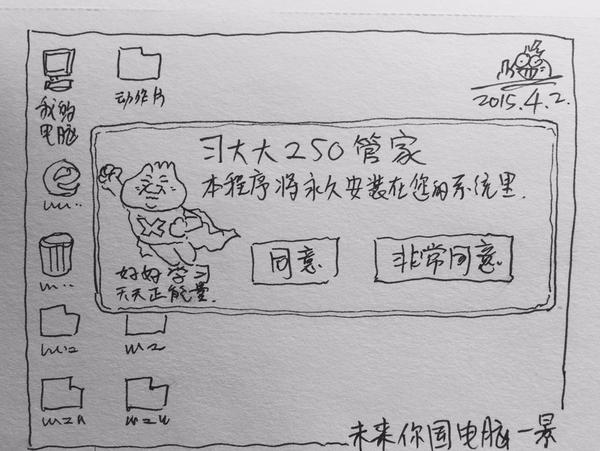 我的
电脑
动作片
2015.4.2.
习大大250管家
本程序将永久安装在您的系统里.
好好学习
天天正能量.
同意.
非常同意.
未来你国电脑一景